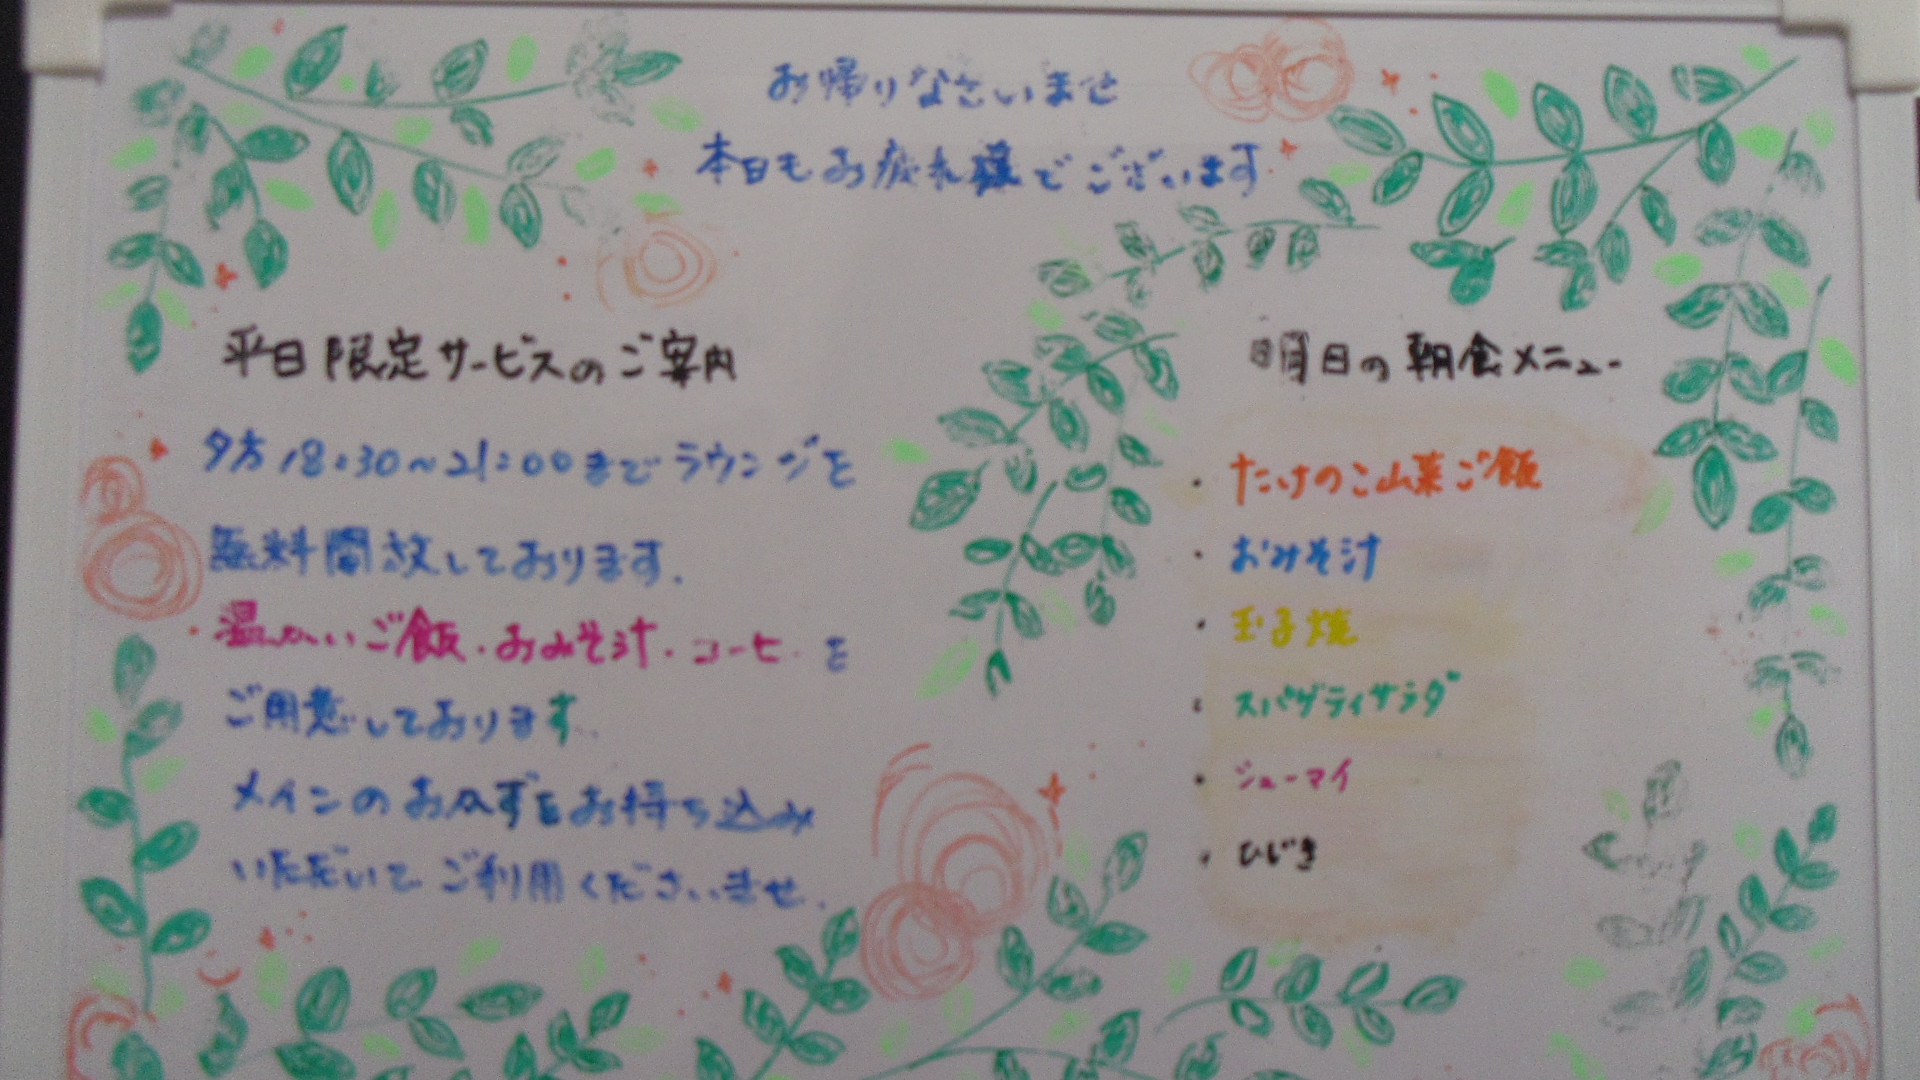 お帰りなさいませ
本日もお疲れ様でございます
平日限定サービスのご案内
夕方18:30～21:00までラウンジを
無料開放しております.
温かいご飯・おみそ汁・コーヒーを
ご用意しております.
メインのおかずをお持ち込み
いただいてご利用くださいませ.
明日の朝食メニュー
・たけのこ山菜ご飯
・おみそ汁
・玉子焼
・スパゲティサラダ
・シューマイ
・ひじき